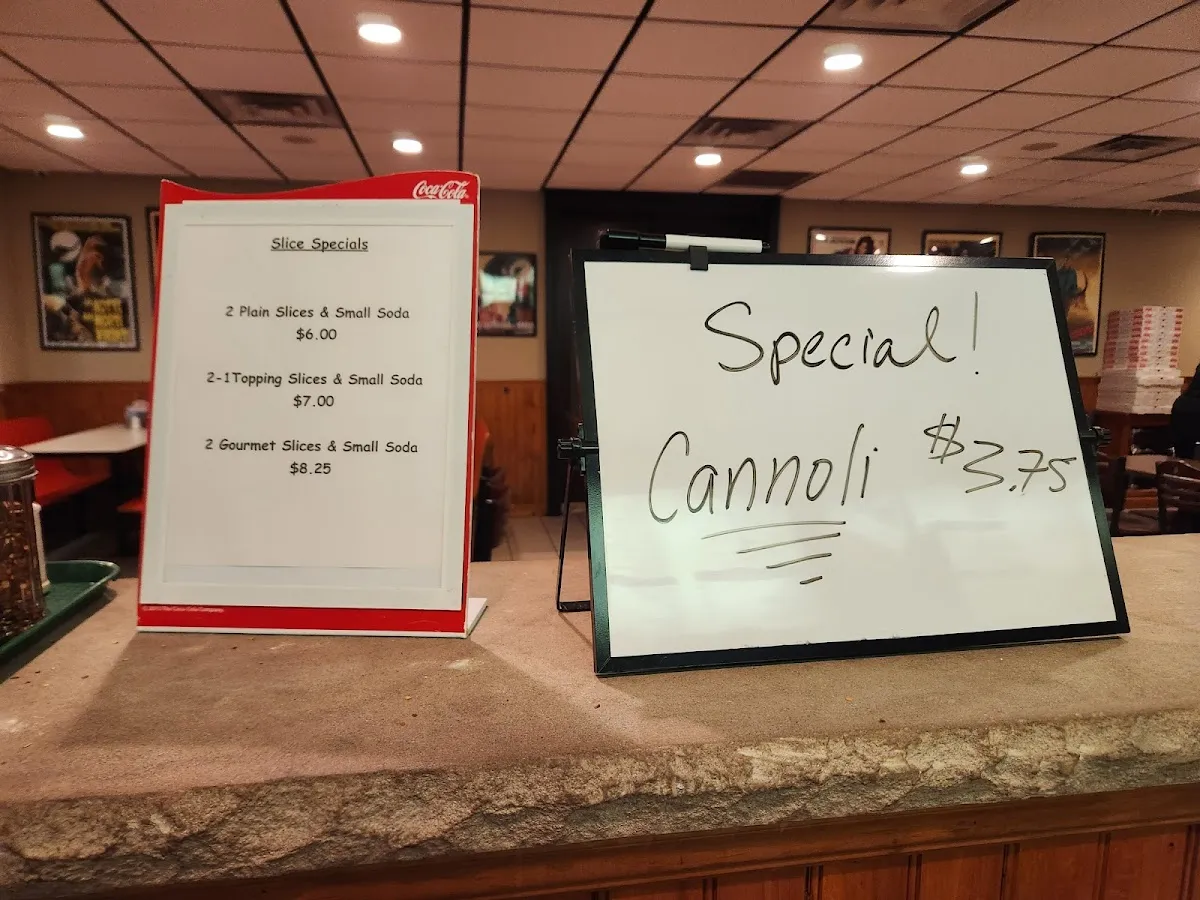 Coca-Cola
Slice Specials
2 Plain Slices & Small Soda
$6.00
2-1Topping Slices & Small Soda
$7.00
2 Gourmet Slices & Small Soda
$8.25
Special!
Cannoli $3.75